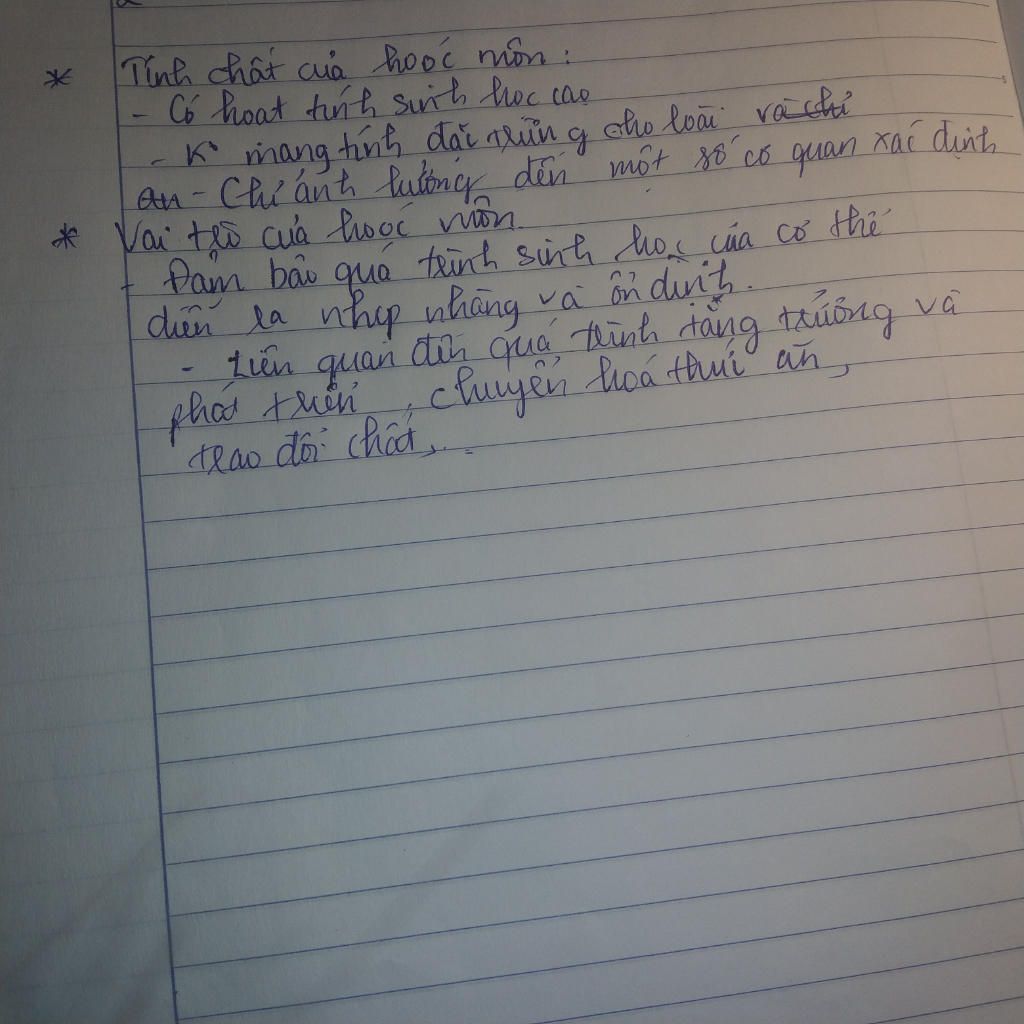 * Tính chất của hoóc môn:
- Có hoạt tính sinh học cao
- K° mang tính đặc trưng cho loài và chỉ
an - Chỉ ảnh hưởng đến một số cơ quan xác định
* Vai trò của hoóc môn
- Đảm bảo quá trình sinh học của cơ thể
diễn ra nhịp nhàng và ổn định.
- Liên quan đến quá trình tăng trưởng và
phát triển, chuyển hoá thức ăn,
trao đổi chất,...